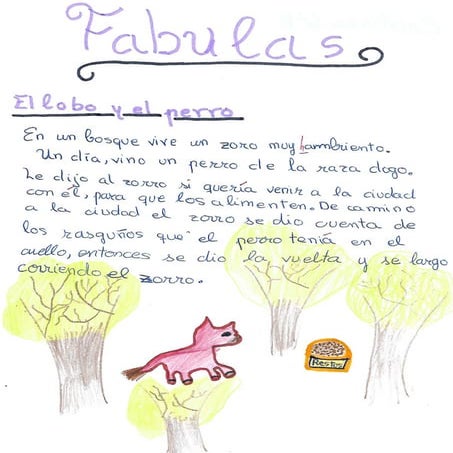 Fabulas
El lobo y el perro
En un bosque vive un zoro muy hambriento.
Un día, vino un perro de la raza dogo.
Le dijo al zorro si quería venir a la ciudad
con él, para que los alimenten. De camino
a la ciudad el zorro se dio cuenta de
los rasguños que el perro tenía en el
cuello, entonces se dio la vuelta y se largo
corriendo el zorro.